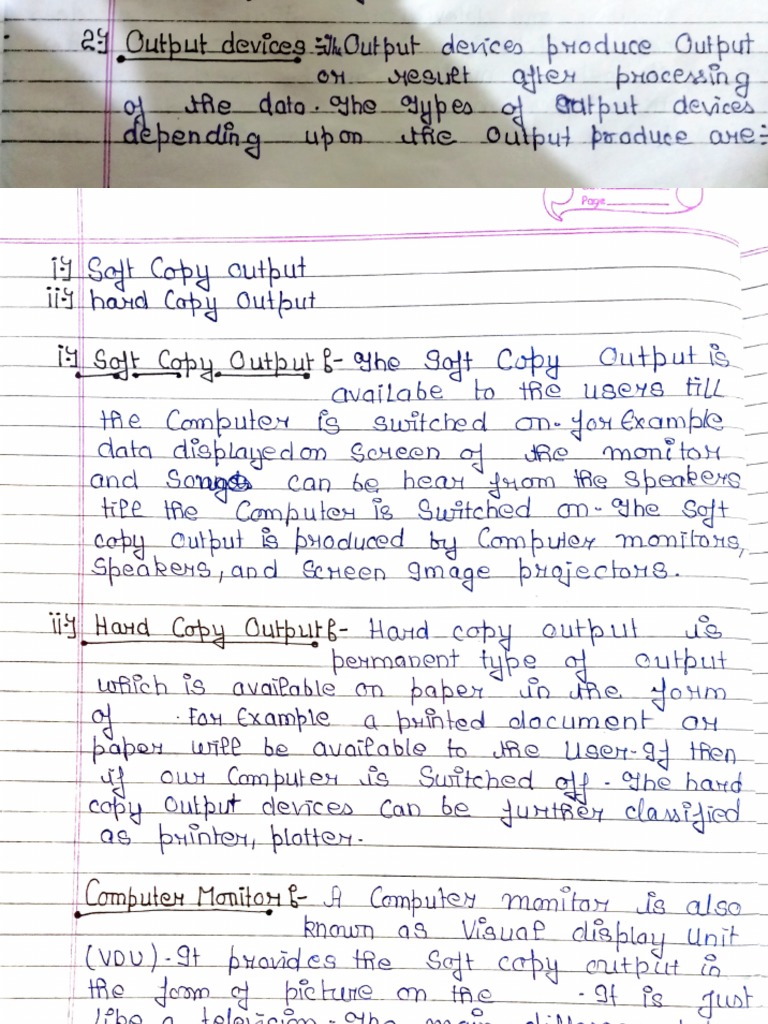 2) Output devices :- The Output devices produce Output
or result after processing
of the data. The Types of output devices
depending upon the output produce are:-
Page
i) Soft Copy output
ii) hard Copy Output
i) Soft Copy Output :- The Soft Copy Output is
availabe to the users till
the Computer is switched on. for Example
data displayed on Screen of the monitor
and Songs can be hear from the speakers
till the Computer is Switched on. The Soft
copy Output is produced by Computer monitors,
Speakers, and Screen Image projectors.
ii) Hard Copy Output :- Hard copy output is
permanent type of output
which is available on paper in the form
of . For Example a printed document or
paper will be available to the User. If then
if our Computer is Switched off. The hard
copy Output devices can be further classified
as printer, plotter.
Computer Monitor :- A Computer monitor is also
known as Visual display Unit
(VDU). It provides the Soft copy output in
the form of picture on the . It is Just
like a television. The main